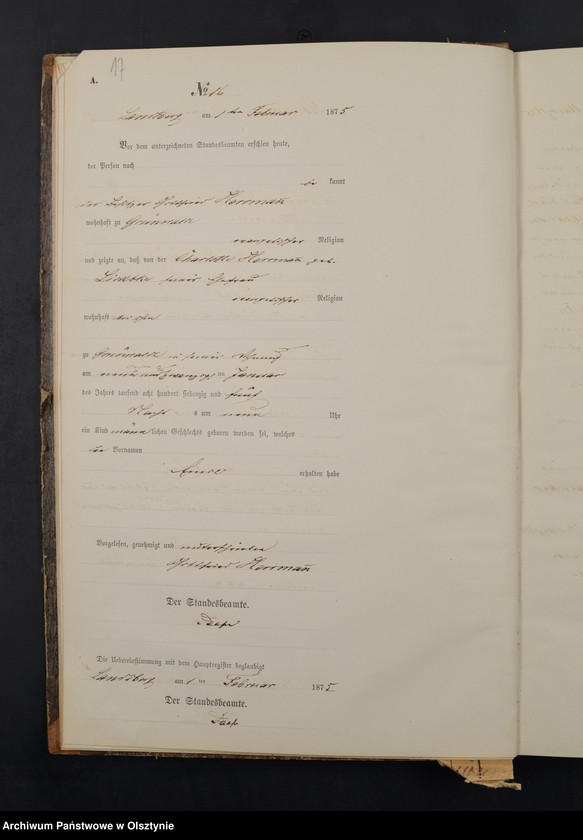 17
A.
№ 16
Landsberg am 1ten Februar 1875
Vor dem unterzeichneten Standesbeamten erschien heute,
der Person nach
be kannt
der Besitzer Gottfried Herrmann
wohnhaft zu Grünwalde
evangelischer Religion
und zeigte an, daß von der Charlotte Herrmann geb.
seiner Ehefrau
evangelischer Religion
wohnhaft bei ihm
zu Grünwalde in seiner Wohnung
am neunundzwanzigsten Januar
des Jahres tausend acht hundert siebenzig und fünf
Nachts um neun Uhr
ein Kind männlichen Geschlechts geboren worden sei, welches
den Vornamen
Emil
erhalten habe
Vorgelesen, genehmigt und unterschrieben
Gottfried Herrmann
Der Standesbeamte.
Die Uebereinstimmung mit dem Hauptregister beglaubigt
Landsberg am 1ten Februar 1875
Der Standesbeamte.
Archiwum Państwowe w Olsztynie